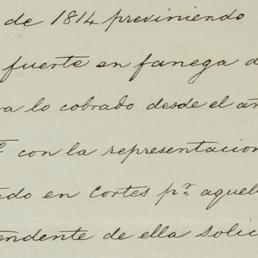 de 1814 previniendo
fuerte en fanega d
a lo cobrado desde el añ
con la representacion
do en Cortes p.r aquel
endente de ella solic